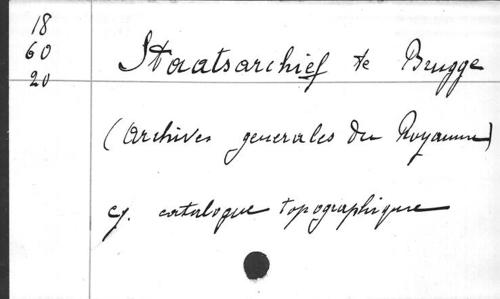 18
60
20
Staatsarchief te Brugge
(Archives generales du Royaume)
cf. catalogue topographique